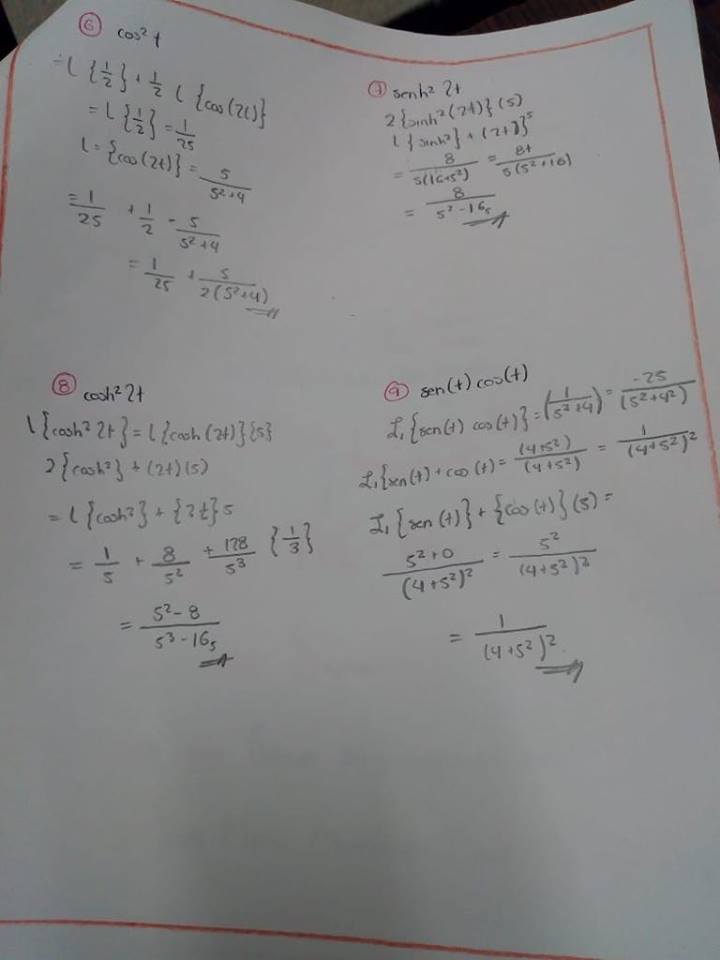 6 cos² t
= L {1/2} + 1/2 L {cos(2t)}
= L {1/2} = 1/25
L = {cos(2t)} = 5/(5²+4)
= 1/25 + 1/2 - 5/(5²+4)
= 1/25 + 5/(2(5²+4))
7 senh² 2t
2{sinh²(2t)}(5)
L {sinh²} + (2t)}⁵
= 8/(5(16+5²)) = 8t/(5(5²+16))
= 8/(5²-16₅)
8 cosh² 2t
L{cosh² 2t} = L{cosh(2t)}{5}
2{cosh²} + (2t)(5)
= L{cosh²} + {2t} 5
= 1/5 + 8/5² + 128/5³ {1/3}
= (5²-8)/(5³-16₅)
9 sen(t) cos(t)
ℒ₁{sen(t) cos(t)} = (1/(5²+4)) = -25/(5²+4²)
ℒ₁{sen(t) + cos(t) = (4+5²)/(4+5²) = 1/(4+5²)²
ℒ₁{sen(t)} + {cos(t)}(5) =
(5²+0)/(4+5²)² = 5²/(4+5²)²
= 1/(4+5²)²